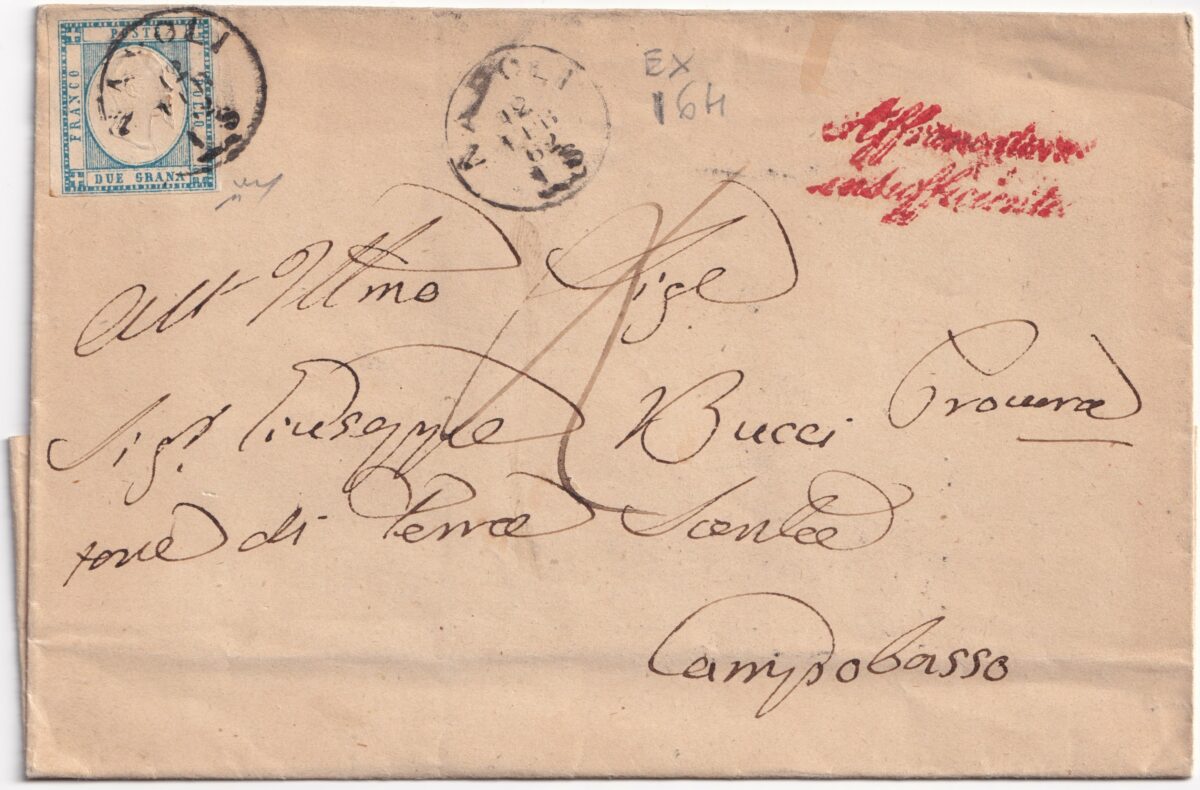 FRANCO
DUE GRANA
NAPOLI
NAPOLI
EX
164
Affrancatura
insufficiente
All' Illmo Sigr
Sigr Giuseppe Bucci Procura
tore di Terra Santa
Campobasso